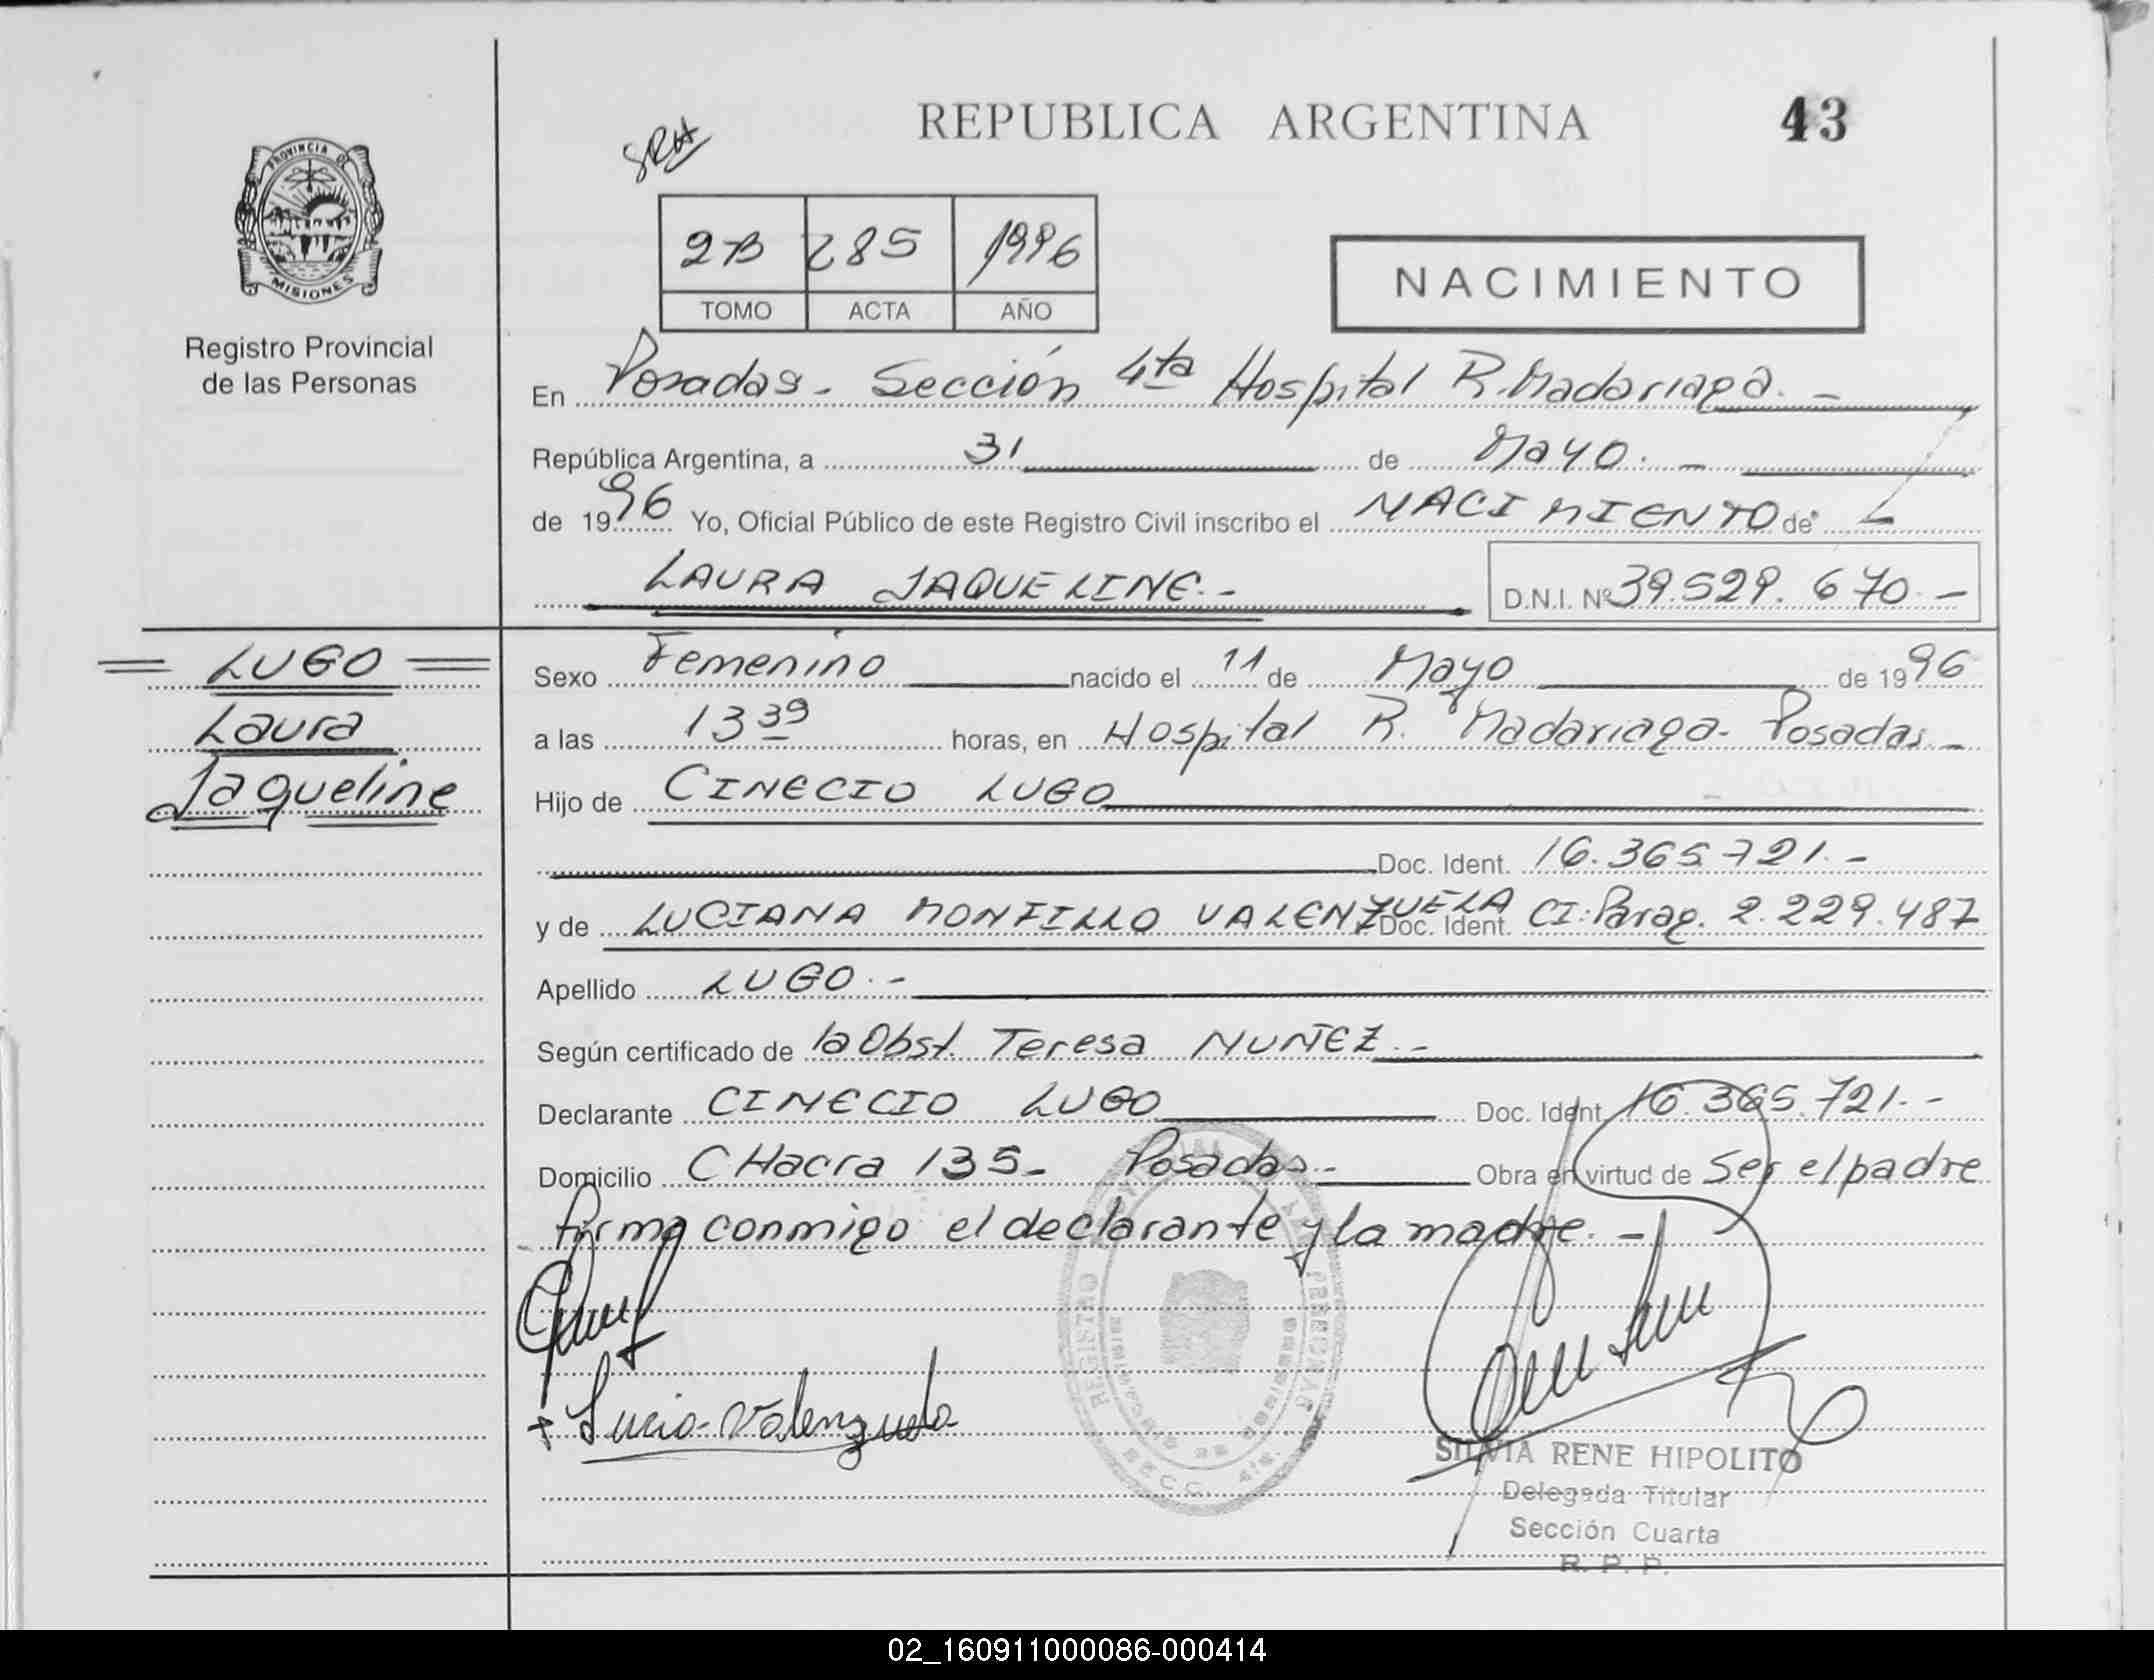 REPUBLICA ARGENTINA
43
SRH
PROVINCIA DE
MISIONES
Registro Provincial
de las Personas
2B 285 1996
TOMO ACTA AÑO
NACIMIENTO
En Posadas - Sección 4ta Hospital R. Madariaga. -
República Argentina, a 31 de Mayo. -
de 1996 Yo, Oficial Público de este Registro Civil inscribo el NACIMIENTO de
LAURA JAQUELINE. - D.N.I. Nº 39.529.670. -
LUGO
Laura
Jaqueline
Sexo Femenino nacido el 11 de Mayo de 1996
a las 13 39 horas, en Hospital R. Madariaga - Posadas. -
Hijo de CINECIO LUGO
Doc. Ident. 16.365.721. -
y de LUCIANA MONFILLO VALENZUELA Doc. Ident. CI: Parag. 2.229.487
Apellido LUGO. -
Según certificado de la Obst. Teresa NUÑEZ. -
Declarante CINECIO LUGO Doc. Ident. 16.365.721. -
Domicilio CHacra 135 - Posadas. - Obra en virtud de Ser el padre
firma conmigo el declarante y la madre. -
+ Lucia Valenzuela
REGISTRO
SECC. 4ta.
SILVIA RENE HIPOLITO
Delegada Titular
Sección Cuarta
R. P. P.
02_160911000086-000414